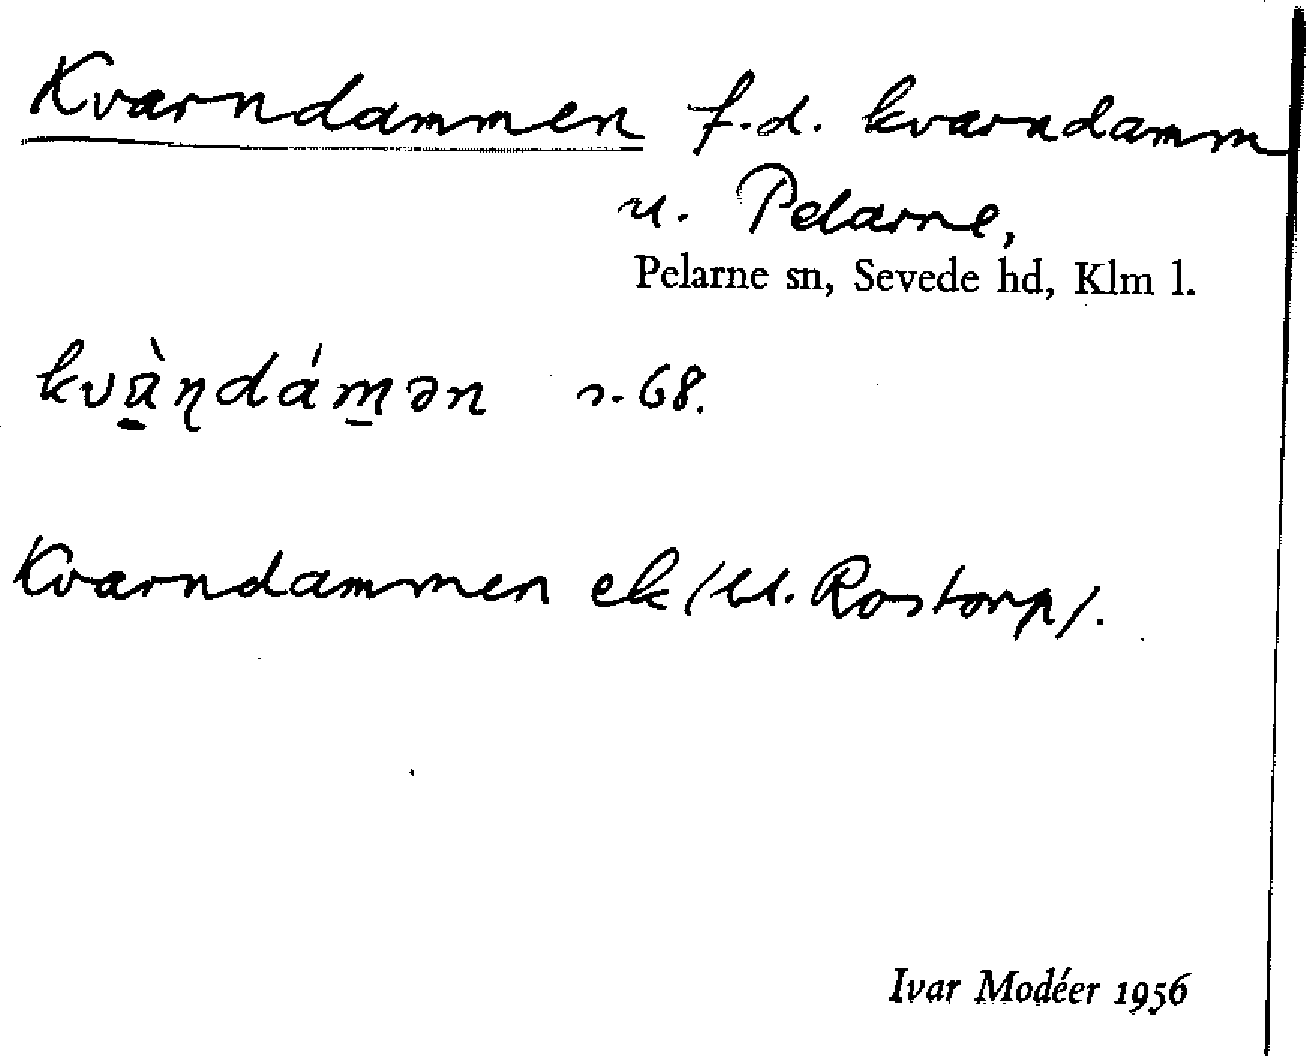 Kvarndammen f.d. kvarndamm
u. Pelarne,
Pelarne sn, Sevede hd, Klm l.
kvàṇdám̱ən s. 68.
Kvarndammen ek (u. Rostorp).
Ivar Modéer 1956